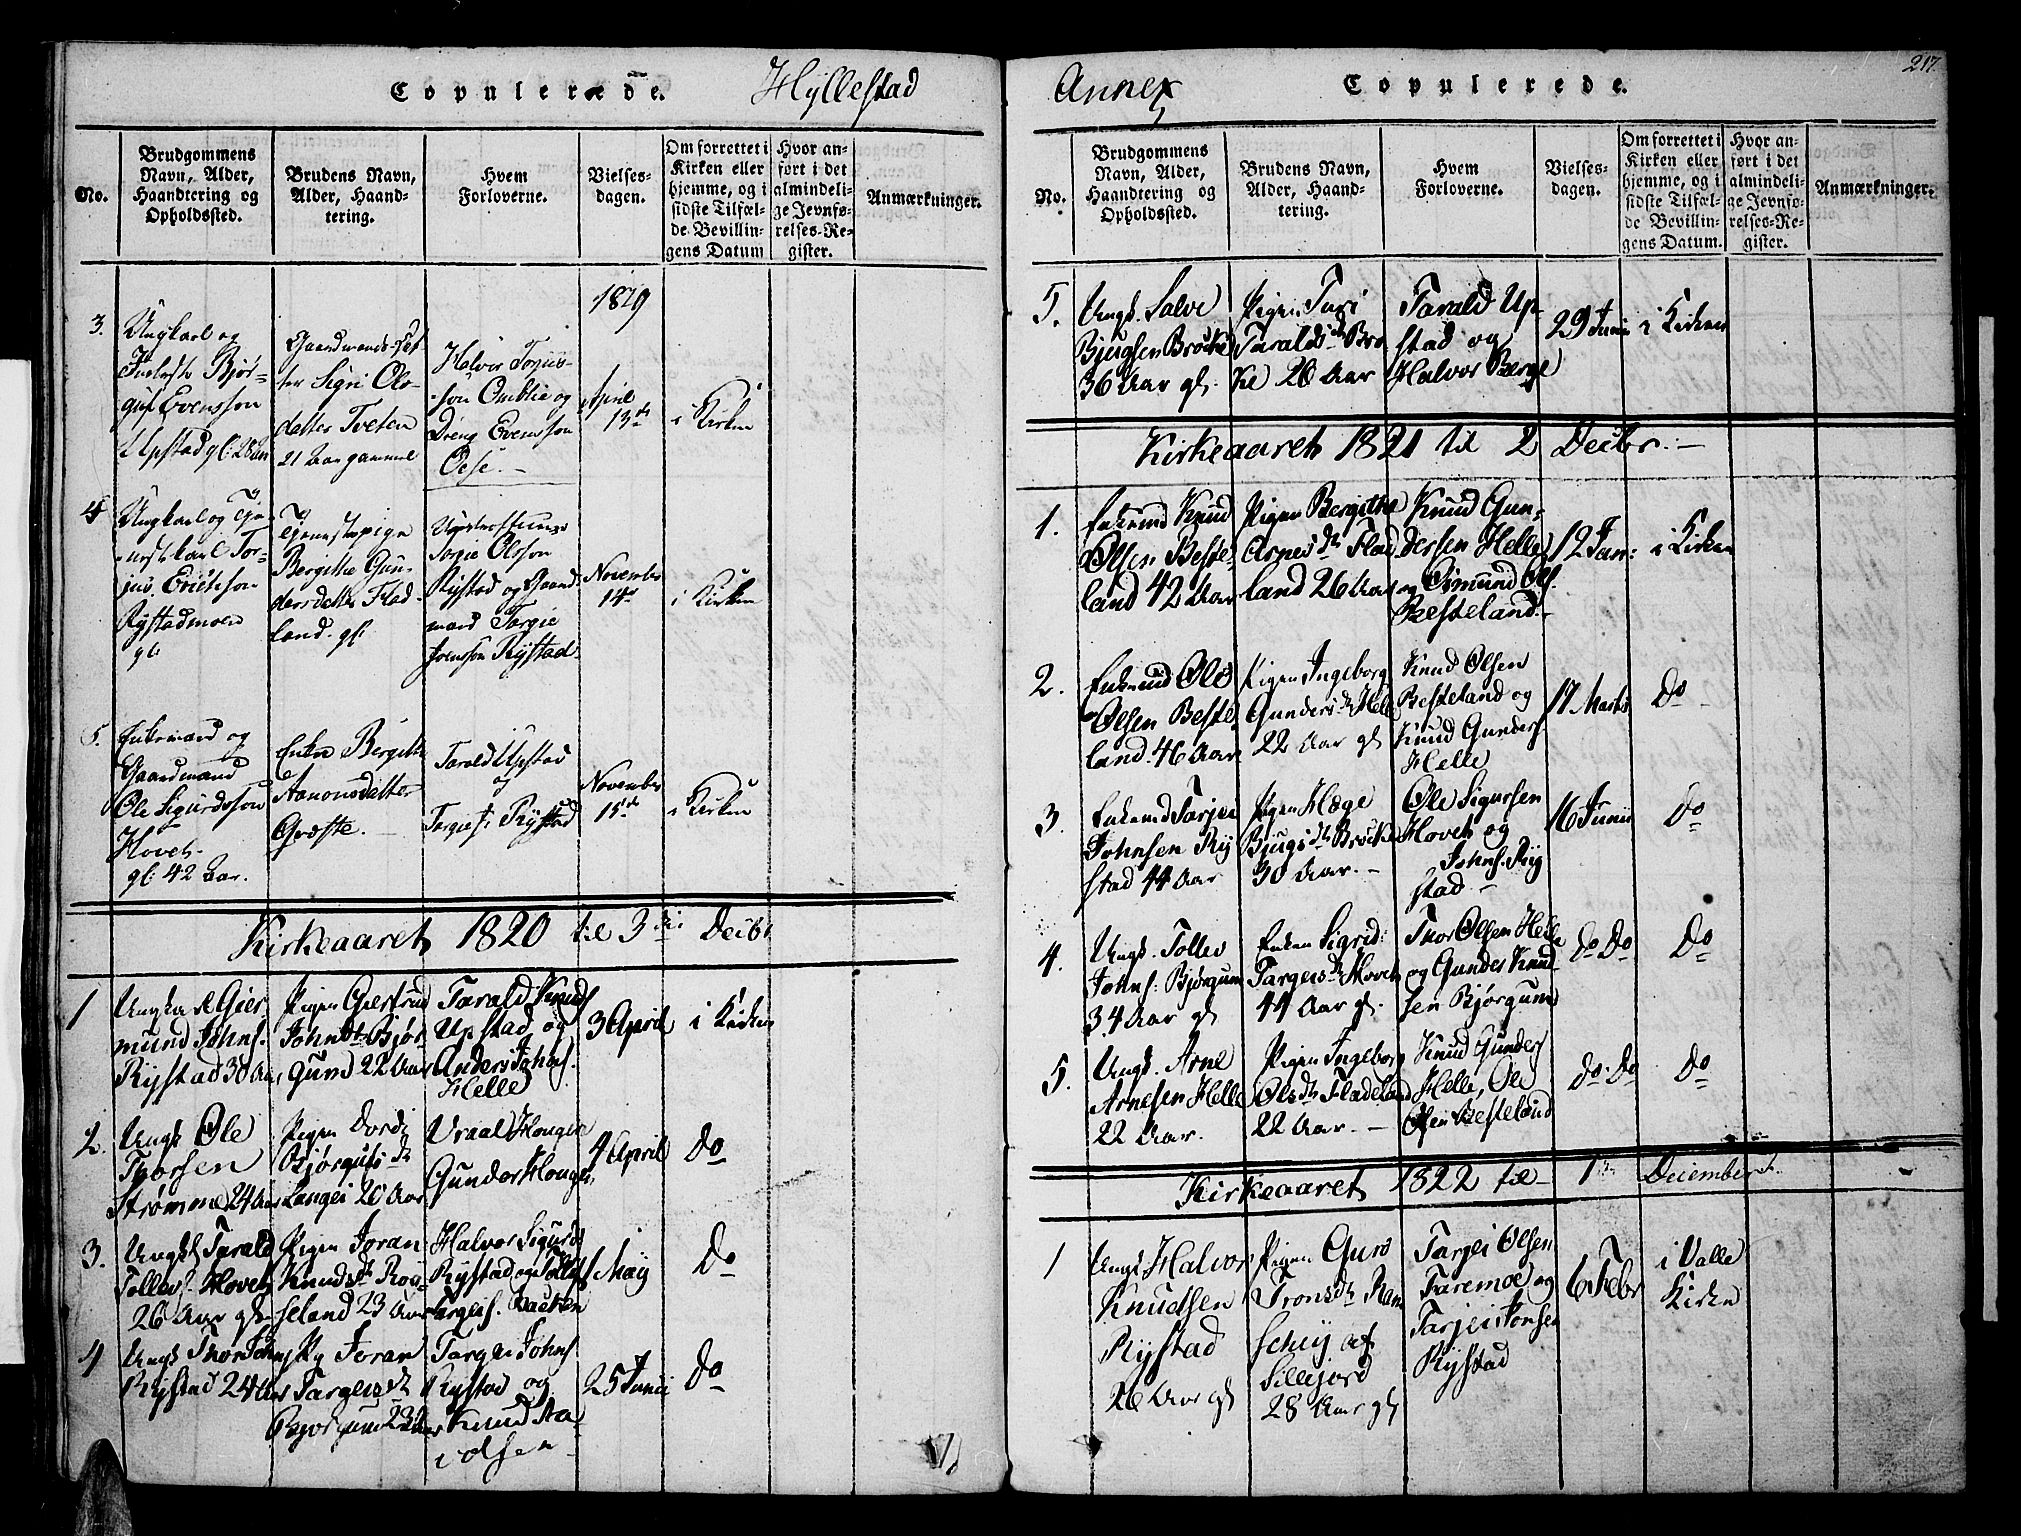 Copulerede.
Hyllestad
No.
Brudgommens Navn, Alder, Haandtering og Opholdssted.
Brudens Navn, Alder, Haandtering.
Hvem Forloverne.
Vielsesdagen.
Om forrettet i Kirken eller hjemme, og i sidste Tilfælde Bevillingens Datum
Hvor anført i det almindelige Jevnførelses-Register.
Anmærkninger.
1819
3.
Ungkarl og
Bjør-
guf Evensson
Upstad gl: 28
Gaardmands-Dat-
ter Sigri Ols-
datter Tveten
21 Aar gammel
Halvor Torjus-
son Omblie og
Dreng Evensson
Oese.
April
13de
i Kirken
4
Ungkarl og Tje-
nestkarl Tor-
jus Erichson
Rystadmoen
gl:
Tjenestepige
Bergithe Gun-
dersdatter Flad-
land. gl:
Torjе Olsson
Rystad og Gaard-
mand Torgie
Joensson Rystad
November
14de
i Kirken
5.
Enkemand og
Gaardmand
Ole Sigurdsson
Hovet.
gl: 42 Aar.
Enke Bergithe
Aanonsdatter
Græste.
Tarald Upstad
og
Torgies: Rystad
November
15de
i Kirken
Kirkeaaret 1820 til 3die Decbr
1
Ungka rl Gier
mund Johns.
Rystad 30 Aar
Pigen Giertrud
Johnsdtr Bjør
gum 22 Aar
Tarald Knuds
Upstad og
Anders Johns.
Helle
3 April
i Kirken
2.
Ungk Ole
Thorsen
Strømme 24 Aar
Pigen Dordi
Bjørgufs dtr
Langei 20 Aar
Vraal Honger
Gunder Honge
4 April
Do
3.
Ungk Tarald
Tollevs. Hovet
26 Aar gl
Pigen Joran
Knuds dtr Roi
seland 23 Aar
Halvor Sigurds
Rystad og Tollef
Targeis.
1 May
Do
4
Ungk Thor Johns
Rystad 24 Aar
Pig Joran
Targeis dtr
Bjørgum 23 Aar
Targei Johns
Rystad og
Knud Sta
i olsen
25 Junii
Do
Annex
Copulerede.
217.
No.
Brudgommens Navn, Alder, Haandtering og Opholdssted.
Brudens Navn, Alder, Haandtering.
Hvem Forloverne.
Vielsesdagen.
Om forrettet i Kirken eller hjemme, og i sidste Tilfælde Bevillingens Datum.
Hvor anført i det almindelige Jevnførelses-Register.
Anmærkninger.
5.
Ungk. Salve
Bjugsen Brokke
36 Aar gl.
Pigen Turi
Taralds dtr Bro
ke 26 Aar
Tarald Up
stad og
Halvor Berge
29 Junii
i Kirken
Kirkeaaret 1821 til 2 Decbr.
1.
Enkemd Knud
Olsen Beste
land 42 Aar
Pigen Bergithe
Arnes dtr Flad
land 26 Aar
Knud Gun
dersen Helle
og Osmund Ols.
Besteland
12 Jan:
i Kirken
2.
Enkemd Ole
Olsen Beste
land. 46 Aar
Pigen Ingeborg
Gunders dtr Helle
22 Aar gl
Knud Olsen
Besteland og
Knud Gunders
Helle
17 Marts
Do
3.
Enkemd Tarjei
Johnsen Ry
stad 44 Aar
Pigen Hæge
Bjugs dtr Brokke
30 Aar.
Ole Sigursen
Hovet og
Johns. Ry
stad
16 Junii
Do
4.
Ungk. Tollev
Johns: Bjørgum
34 Aar gl
Enken Sigrid:
Targeis dtr Hovet
44 Aar gl.
Thor Olsen Helle
og Gunder Knud
sen Bjørgum
Do Do
Do
5.
Ungk. Arne
Arnesen Helle
22 Aar.
Pigen Ingeborg
Ols dtr Fladeland
22 Aar.
Knud Gunders
Helle, Ole
Olsen Besteland
Do. Do
Do
Kirkeaaret 1822 til 1ste December
1
Ungk Halvor
Knudsen
Rystad
26 Aar gl
Pigen Guro
Trons dtr Ram
schiy af
Sillejord
28 Aar gl
Tarjei Olsen
Faremoe og
Tarjei Jonsen
Rystad
6 Febr
i Valle
Kirken